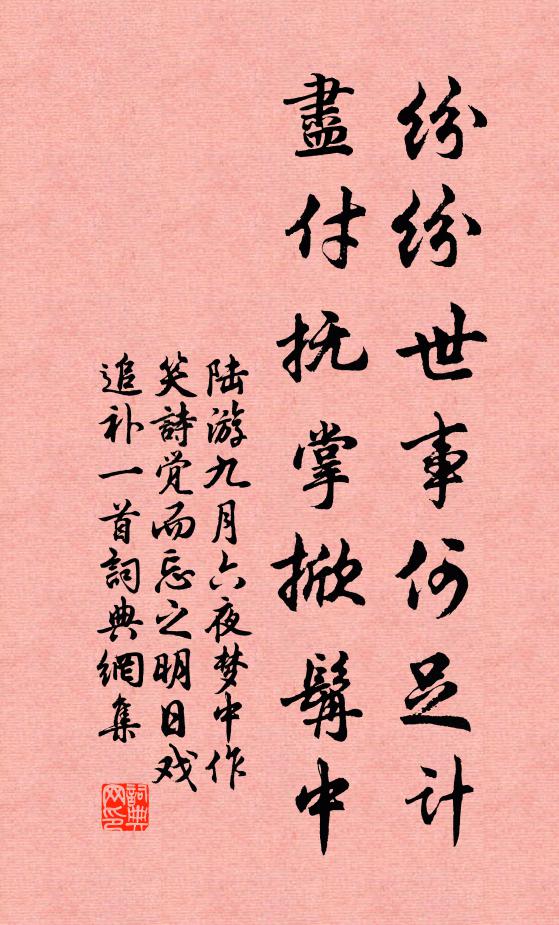 纷纷世事何足计
盡付抚掌掀髯中
陆游九月六夜梦中作
笑詩觉而忘之明日戏
追补一首詞典網集
詞典网印